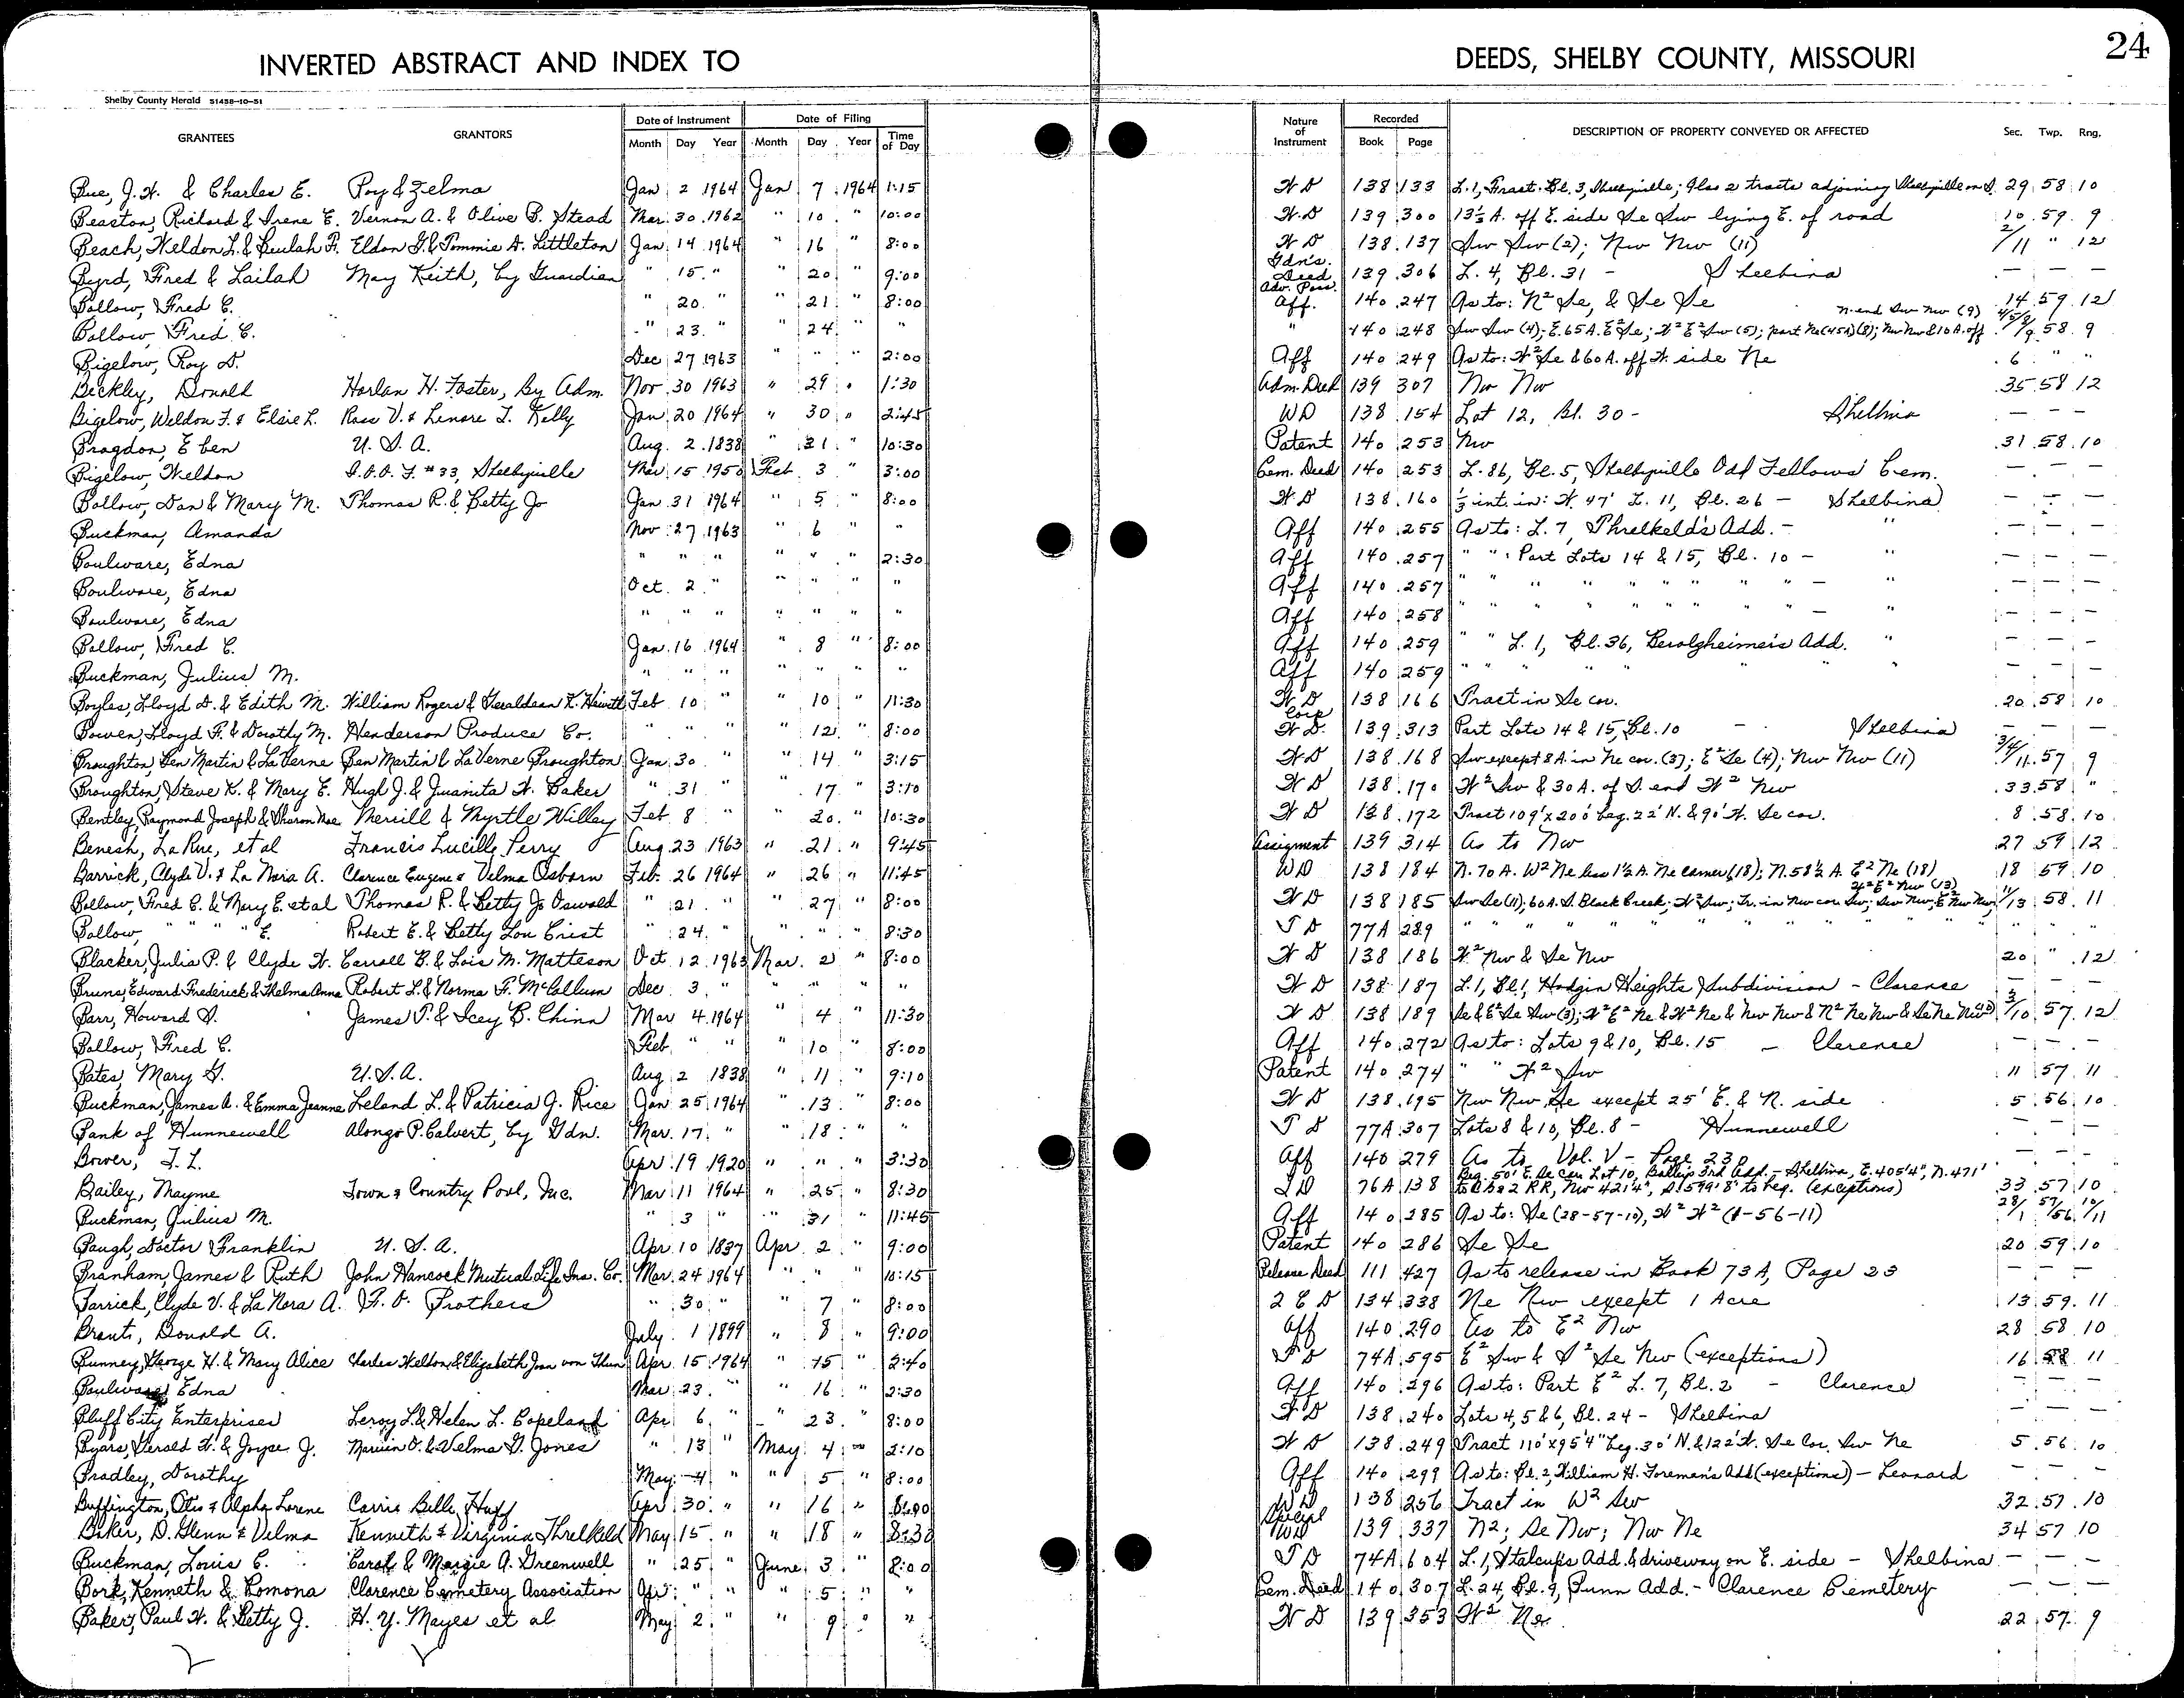 INVERTED ABSTRACT AND INDEX TO DEEDS, SHELBY COUNTY, MISSOURI 24
Shelby County Herald 51458-10-51
GRANTEES GRANTORS Date of Instrument Month Day Year Date of Filing Month Day Year Time of Day Nature of Instrument Recorded Book Page DESCRIPTION OF PROPERTY CONVEYED OR AFFECTED Sec. Twp. Rng.
Bue, J.W. & Charles E. Roy & Zelma Jan 2 1964 Jan 7 1964 1:15 W D 138 133 L.1, Fract. Bl. 3, Shelbyville; Also 2 tracts adjoining Shelbyville on S. 29 58 10
Beaston, Richard & Irene E. Vernon A. & Olive B. Stead Mar. 30 1962 " 10 " 10:00 W.D 139 300 13⅓ A. off E. side Se Sw lying E. of road 10 59 9
Beach, Weldon L. & Beulah F. Eldon G. & Tommie A. Littleton Jan 14 1964 " 16 " 8:00 W D 138 137 Sw Sw (2); Nw Nw (11) 2/11 " 12
Byrd, Fred & Lailah May Keith, by Guardian " 15 " " 20 " 9:00 Gdn's. Deed 139 306 L. 4, Bl. 31 - Shelbina — — —
Bollow, Fred C. " 20 " " 21 " 8:00 Adv. Poss. Aff. 140 247 As to: N² Se, & Se Se 14 59 12
Bollow, Fred C. " 23 " " 24 " " " 140 248 Sw Sw (4); E.65A. E² Se; W² E² Sw (5); part Ne (45A) (8); Nw Nw & 10 A. off N. end Sw Nw (9) 4/5/8/9 58 9
Bigelow, Roy D. Dec 27 1963 " " " 2:00 Aff 140 249 As to: W² Se & 60 A. off W. side Ne 6 " "
Beckley, Donald Harlan H. Foster, By Adm. Nov 30 1963 " 29 " 1:30 Adm. Deed 139 307 Nw Nw 35 58 12
Bigelow, Weldon F. & Elsie L. Ross V. & Lenore L. Kelly Jan 20 1964 " 30 " 2:45 WD 138 154 Lot 12, Bl. 30 - Shelbina — — —
Bragdon, Eben U.S.A. Aug. 2 1838 " 31 " 10:30 Patent 140 253 Nw 31 58 10
Bigelow, Weldon I.O.O.F. #33, Shelbyville Mar 15 1950 Feb 3 " 3:00 Cem. Deed 140 253 L. 86, Bl. 5, Shelbyville Odd Fellows' Cem. — — —
Bollow, Dan & Mary M. Thomas R. & Betty Jo Jan 31 1964 " 5 " 8:00 W D 138 160 ⅓ int. in: W. 47' L. 11, Bl. 26 - Shelbina — — —
Buckman, Amanda Nov 27 1963 " 6 " " Aff 140 255 As to: L. 7, Threlkeld's Add. - " — — —
Boulware, Edna " " " " " " 2:30 Aff 140 257 " " : Part Lots 14 & 15, Bl. 10 - " — — —
Boulware, Edna Oct. 2 " " " " " Aff 140 257 " " " " " " " " - " — — —
Boulware, Edna " " " " " " " Aff 140 258 " " " " " " " " - " — — —
Bollow, Fred C. Jan. 16 1964 " 8 " 8:00 Aff 140 259 " " L. 1, Bl. 36, Berolzheimer's Add. " — — —
Buckman, Julius M. " " " " " " " Aff 140 259 " " " " " " " — — —
Boyles, Lloyd D. & Edith M. William Rogers & Geraldean K. Hewitt Feb 10 " " 10 " 11:30 W D 138 166 Tract in Se cor. 20 58 10
Bowen, Lloyd F. & Dorothy M. Henderson Produce Co. " " " " 12 " 8:00 Corp W D. 139 313 Part Lots 14 & 15, Bl. 10 - Shelbina — — —
Broughton, Ben Martin & LaVerne Ben Martin & LaVerne Broughton Jan 30 " " 14 " 3:15 W D 138 168 Sw except 8 A. in Ne cor. (3); E² Se (4); Nw Nw (11) 3/4/11 57 9
Broughton, Steve K. & Mary E. Hugh J. & Juanita W. Baker " 31 " 17 " 3:10 W D 138 170 W² Sw & 30 A. of S. end W² Nw 33 58 "
Bentley, Raymond Joseph & Sharon Mae Merrill & Myrtle Willey Feb 8 " " 20 " 10:30 W D 138 172 Tract 109' x 200' beg. 22' N. & 90' W. Se cor. 8 58 10
Benesh, La Rue, et al Francis Lucille Perry Aug 23 1963 " 21 " 9:45 Assignment 139 314 As to Nw 27 59 12
Barrick, Clyde V. & La Nora A. Clarence Eugene & Velma Osborn Feb. 26 1964 " 26 " 11:45 WD 138 184 N. 70 A. W² Ne less 1½ A. Ne corner (18); N. 58½ A. E² Ne (18) 18 59 10
Bollow, Fred C. & Mary E. et al Thomas R. & Betty Jo Oswald " 21 " " 27 " 8:00 W D 138 185 Sw Se (11); 60 A. S. Black Creek; W² Sw; Tr. in Nw cor Sw; Sw Nw; E² Nw Nw; W² E² Nw (13) 11/13 58 11
Bollow, " " " " E. Robert E. & Betty Lou Crist " 24 " " " " 8:30 T D 77A 289 " " " " " " " " " " "
Blacker, Julia P. & Clyde W. Carroll B. & Lois M. Matteson Oct 12 1963 Mar. 2 " 8:00 W D 138 186 W² Nw & Se Nw 20 " 12
Bruns, Edward Frederick & Thelma Anna Robert L. & Norma F. McCollum Dec 3 " " " " " W D 138 187 L.1, Bl.1, Hodgin Heights Subdivision - Clarence — — —
Barr, Howard S. James P. & Icey B. Chinn Mar 4 1964 " 4 " 11:30 W D 138 189 Se & E² Se Sw (3); W² E² Ne & W² Ne & Nw Nw & N² Ne Nw & Se Ne Nw (10) 3/10 57 12
Bollow, Fred C. Feb " " " 10 " 8:00 Aff 140 272 As to: Lots 9 & 10, Bl. 15 - Clarence — — —
Bates, Mary G. U.S.A. Aug 2 1838 " 11 " 9:10 Patent 140 274 " " W² Sw 11 57 11
Buckman, James A. & Emma Jeanne Leland L. & Patricia J. Rice Jan 25 1964 " 13 " 8:00 W D 138 195 Nw Nw Se except 25' E. & N. side 5 56 10
Bank of Hunnewell Alonzo P. Calvert, by Gdn. Mar. 17 " " 18 " " T D 77A 307 Lots 8 & 10, Bl. 8 - Hunnewell — — —
Bower, T. L. Apr 19 1920 " " " 3:30 Aff 140 279 As to Vol. V - Page 230 — — —
Bailey, Mayme Town & Country Pool, Inc. Mar 11 1964 " 25 " 8:30 76A 138 Beg. 50' E. Se cor. Lot 10, 3rd Add. - Shelbina, E. 405'4", N. 471' to RR, Nw 421'4", S. 599'8" to beg. (exceptions) 33 57 10
Buckman, Julius M. " 3 " " 31 " 11:45 Aff 140 285 As to: Se (28-57-10), W² W² (1-56-11) 28/1 57/56 10/11
Baugh, Doctor Franklin U.S.A. Apr 10 1837 Apr 2 " 9:00 Patent 140 286 Se Se 20 59 10
Branham, James & Ruth John Hancock Mutual Life Ins. Co. Mar. 24 1964 " " " 10:15 Release Deed 111 427 As to release in Book 73A, Page 23 — — —
Barrick, Clyde V. & La Nora A. F. O. Prothers " 30 " " 7 " 8:00 2 C D 134 338 Ne Nw except 1 Acre 13 59 11
Brant, Donald A. July 1 1899 " 8 " 9:00 Aff 140 290 As to E² Nw 28 58 10
Bunney, George H. & Mary Alice Charles Weldon & Elizabeth Joan von Thun Apr. 15 1964 " 15 " 2:40 T D 74A 595 E² Sw & S² Se Nw (exceptions) 16 58 11
Boulware, Edna Mar 23 " " 16 " 2:30 Aff 140 296 As to: Part E² L. 7, Bl. 2 - Clarence — — —
Bluff City Enterprises Leroy L. & Helen L. Copeland Apr 6 " " 23 " 8:00 W D 138 240 Lots 4, 5 & 6, Bl. 24 - Shelbina — — —
Byars, Gerald W. & Joyce J. Marvin O. & Velma G. Jones " 13 " May 4 " 2:10 W D 138 249 Tract 110' x 95'4" beg. 30' N. & 122' W. Se Cor. Sw Ne 5 56 10
Bradley, Dorothy May 4 " " 5 " 8:00 Aff 140 299 As to: Bl. 2, William H. Foreman's Add (exceptions) - Leonard — — —
Buffington, Otis & Alpha Lorene Carrie Belle Huff Apr 30 " " 16 " 8:00 WD 138 256 Tract in W² Sw 32 57 10
Baker, D. Glenn & Velma Kenneth & Virginia Threlkeld May 15 " " 18 " 8:30 Special WD 139 337 N²; Se Nw; Nw Ne 34 57 10
Buckman, Louis C. Carol & Margie A. Greenwell " 25 " June 3 " 8:00 T D 74A 604 L. 1, Stalcup's Add. & driveway on E. side - Shelbina — — —
Bork, Kenneth & Romona Clarence Cemetery Association Apr " " " 5 " " Cem. Deed 140 307 L. 24, Bl. 9, Bunn Add. - Clarence Cemetery — — —
Baker, Paul W. & Betty J. H. Y. Mayes et al May 2 " " 9 " " W D 139 353 W² Ne 22 57 9